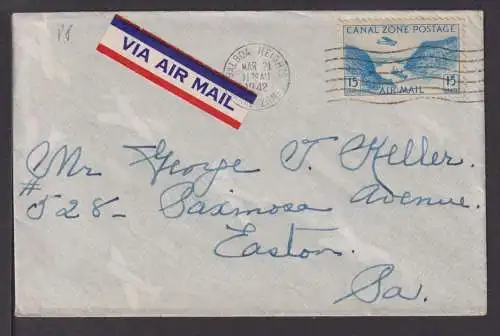 CANAL ZONE POSTAGE
15 15
AIR MAIL
VIA AIR MAIL
BALBOA HEIGHTS
MAR 21
1942
Mr George T. Keller.
#528- Paxinosa Avenue.
Easton.
Pa.